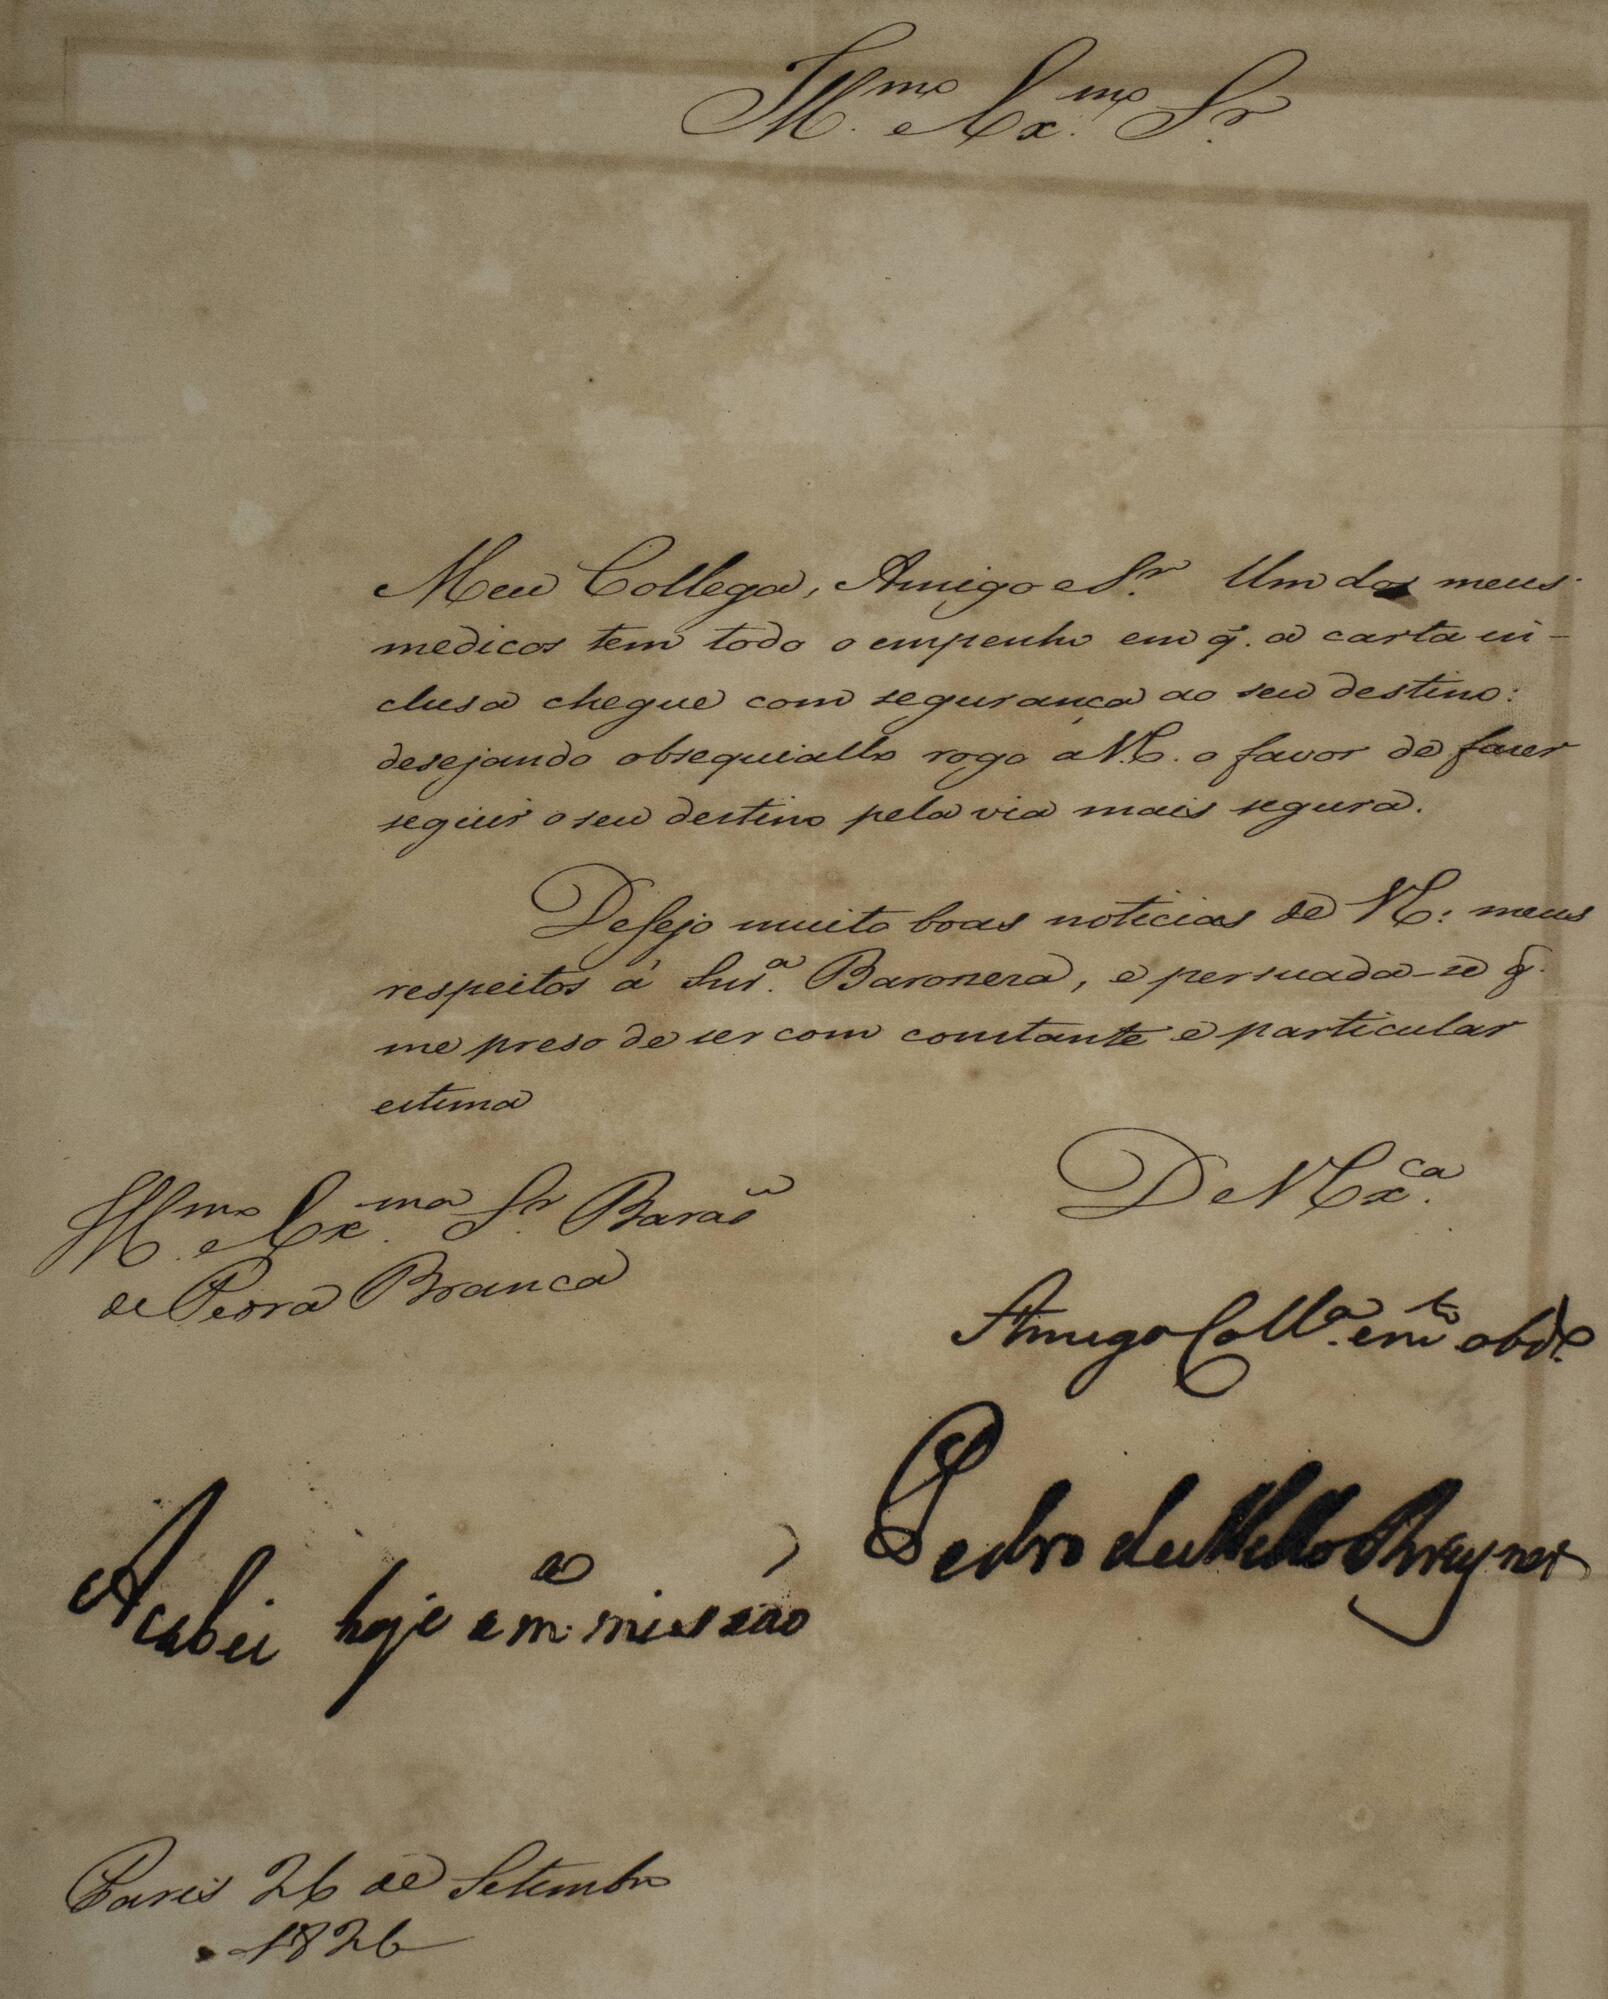 Ill.mo e Ex.mo Sr.
Meu Collega, Amigo e Sr. Um dos meus
medicos tem todo o empenho em q̃. a carta in-
clusa chegue com segurança ao seu destino:
desejando obsequiallo rogo a V.E. o favor de fazer
seguir o seu destino pela via mais segura.
Desejo muito boas noticias de V.E: meus
respeitos á Snr.a Baroneza, e persuada-se q̃.
me preso de ser com constante e particular
estima
De V Ex.ca
Ill.mo e Ex.mo Sr. Barão
de Pedra Branca
Amigo Coll.a e m.to obd.e
Pedro de Mello Breyner
Acabei hoje a m.a missão
Paris 26 de Setembro
1826